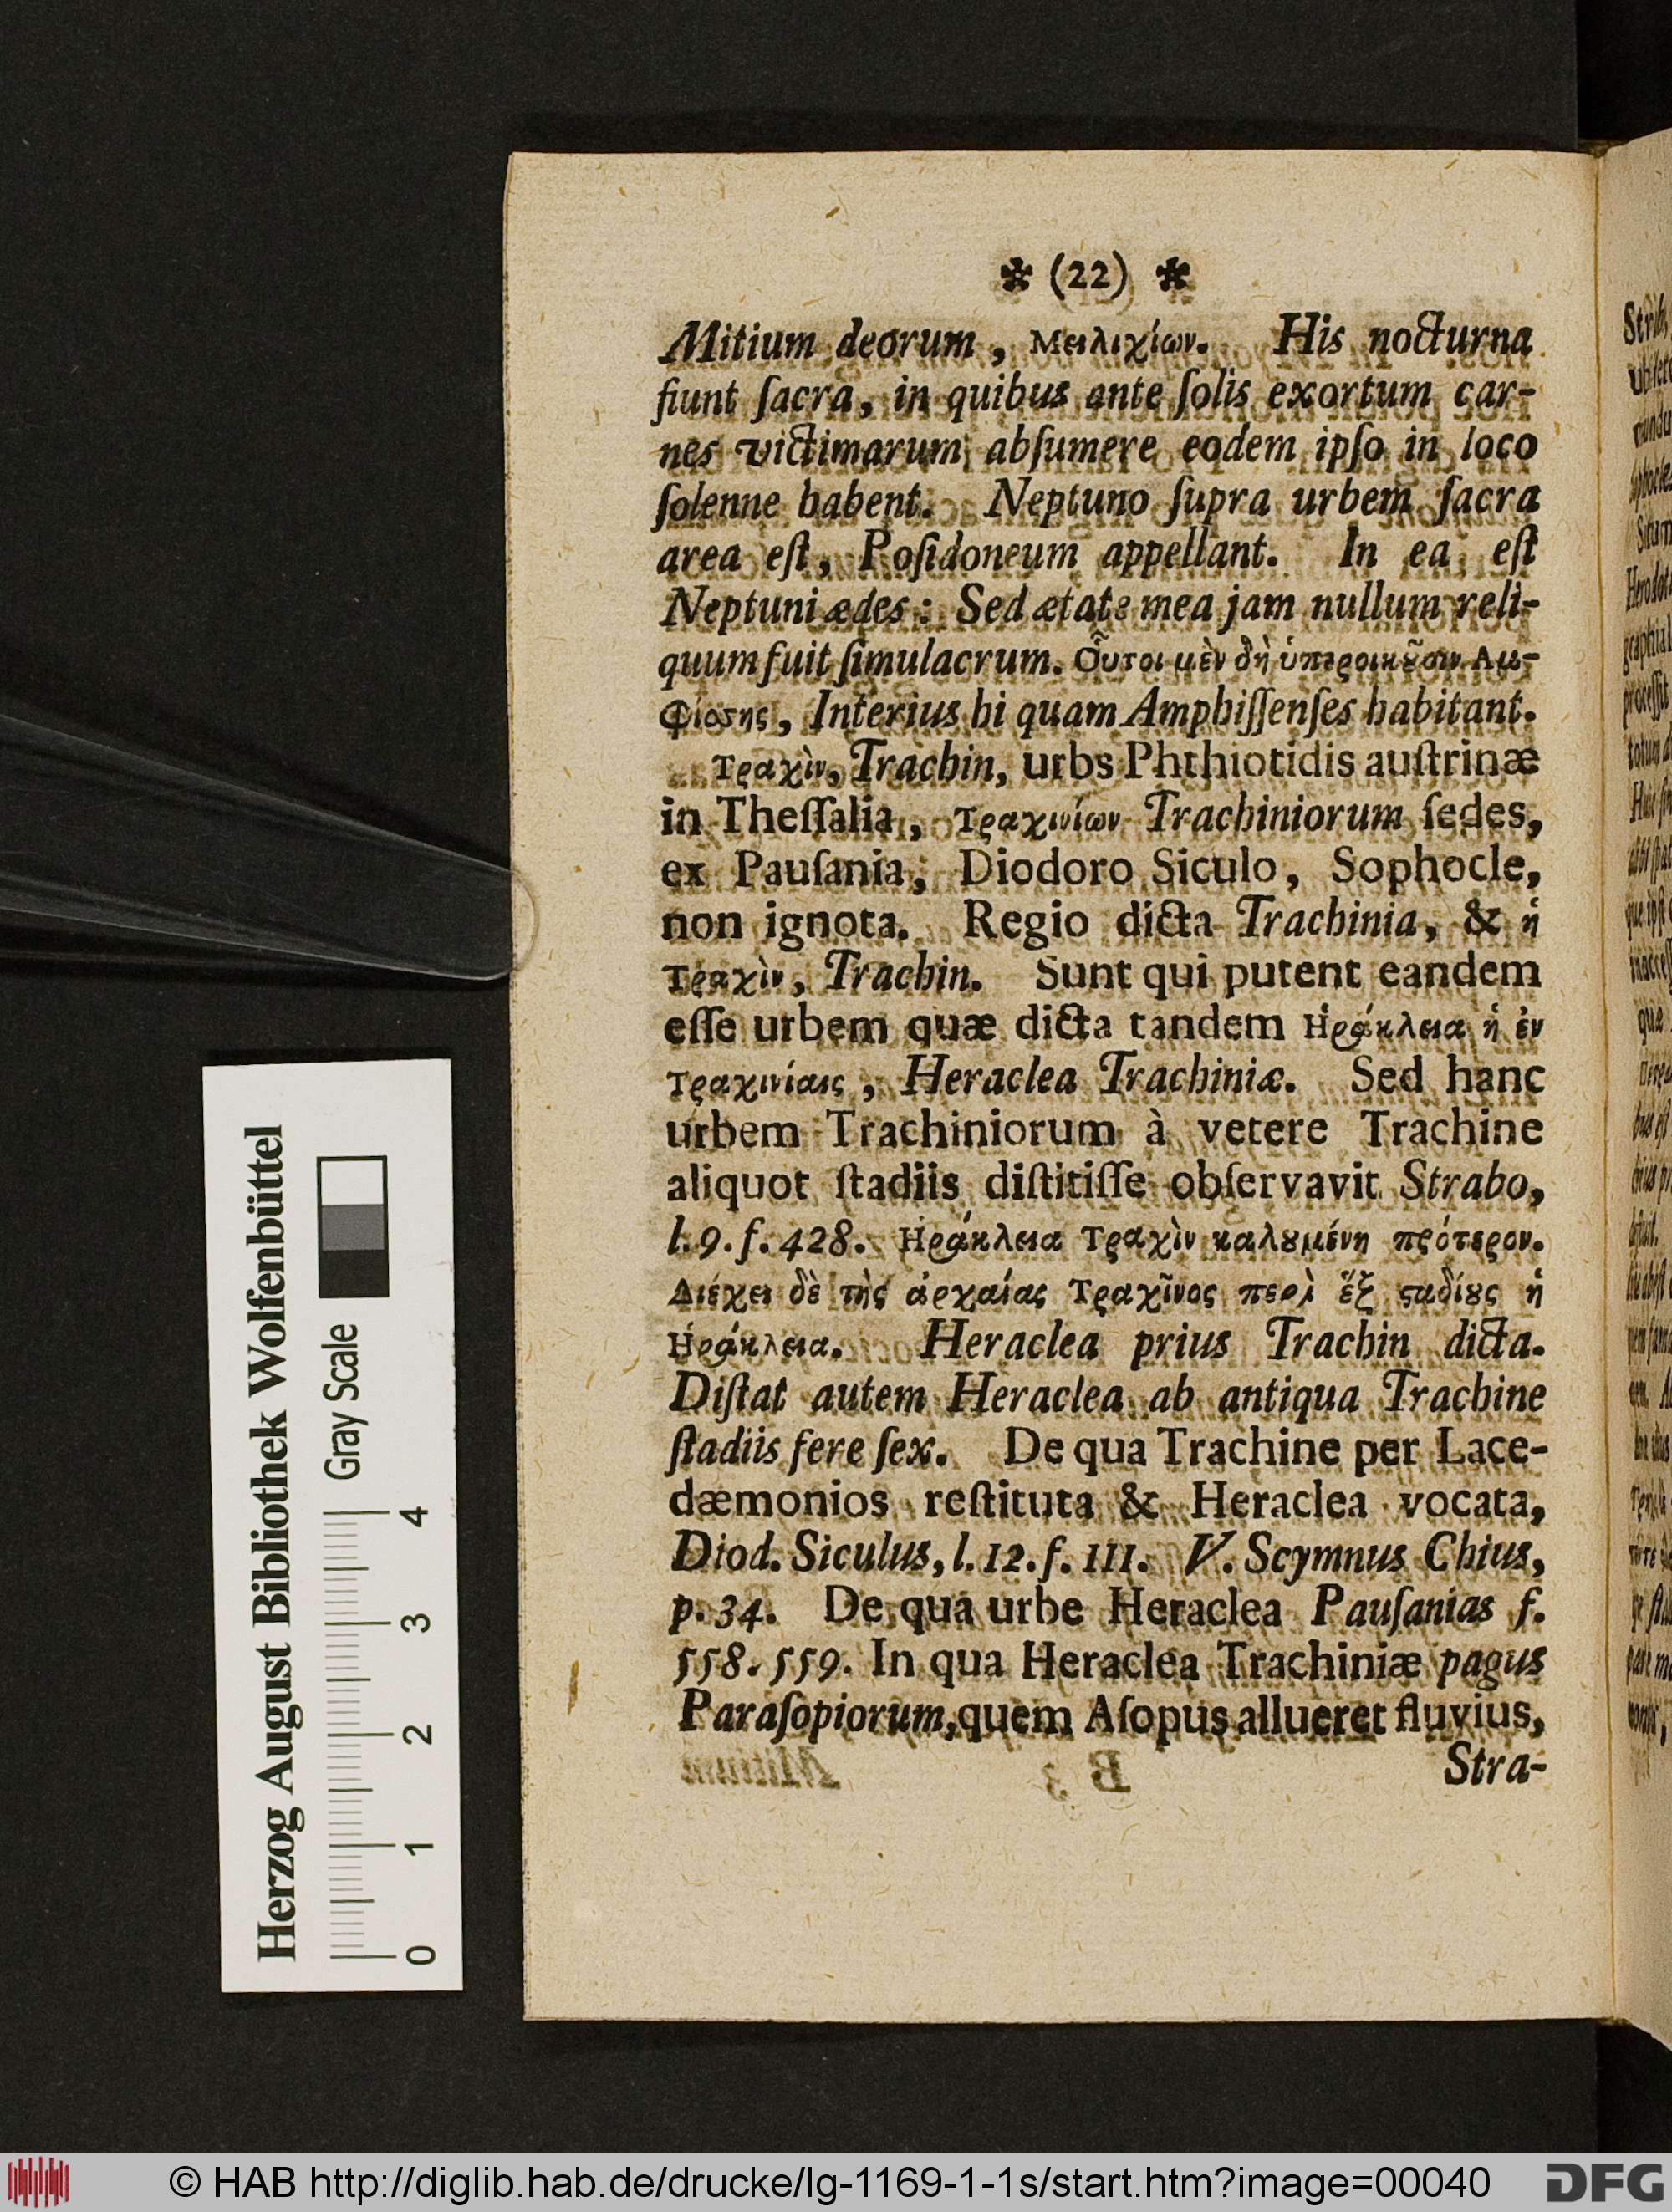 * (22) *
Mitium deorum, Μειλιχίων. His nocturna
fiunt ſacra, in quibus ante ſolis exortum car-
nes victimarum abſumere eodem ipſo in loco
ſolenne habent. Neptuno ſupra urbem ſacra
area eſt, Poſidoneum appellant. In ea eſt
Neptuni ædes: Sed ætate mea jam nullum reli-
quum fuit ſimulacrum. Οὗτοι μὲν δὴ ὑπεροικȣ͂σιν Αμ-
Φίσσης, Interius hi quam Amphiſſenſes habitant.
Τραχὶν, Trachin, urbs Phthiotidis auſtrinæ
in Theſſalia, Τραχινίων Trachiniorum ſedes,
ex Pauſania, Diodoro Siculo, Sophocle,
non ignota. Regio dicta Trachinia, & ἡ
Τραχὶν, Trachin. Sunt qui putent eandem
eſſe urbem quæ dicta tandem Ἡράκλεια ἡ ἐν
Τραχινίαις, Heraclea Trachiniæ. Sed hanc
urbem Trachiniorum à vetere Trachine
aliquot ſtadiis diſtitiſſe obſervavit Strabo,
l. 9. f. 428. Ἡράκλεια Τραχὶν καλȣμένη πρότερον.
Διέχει δὲ τὴς ἀρχαίας Τραχῖνος περὶ ἕξ ϛαδίȣς ἡ
Ἡράκλεια. Heraclea prius Trachin dicta.
Diſtat autem Heraclea ab antiqua Trachine
ſtadiis fere ſex. De qua Trachine per Lace-
dæmonios reſtituta & Heraclea vocata,
Diod. Siculus, l. 12. f. 111. V. Scymnus Chius,
p. 34. De qua urbe Heraclea Pauſanias f.
558. 559. In qua Heraclea Trachiniæ pagus
Paraſopiorum, quem Aſopus allueret fluvius,
Stra-
Herzog August Bibliothek Wolfenbüttel
Gray Scale
0 1 2 3 4
© HAB http://diglib.hab.de/drucke/lg-1169-1-1s/start.htm?image=00040
DFG